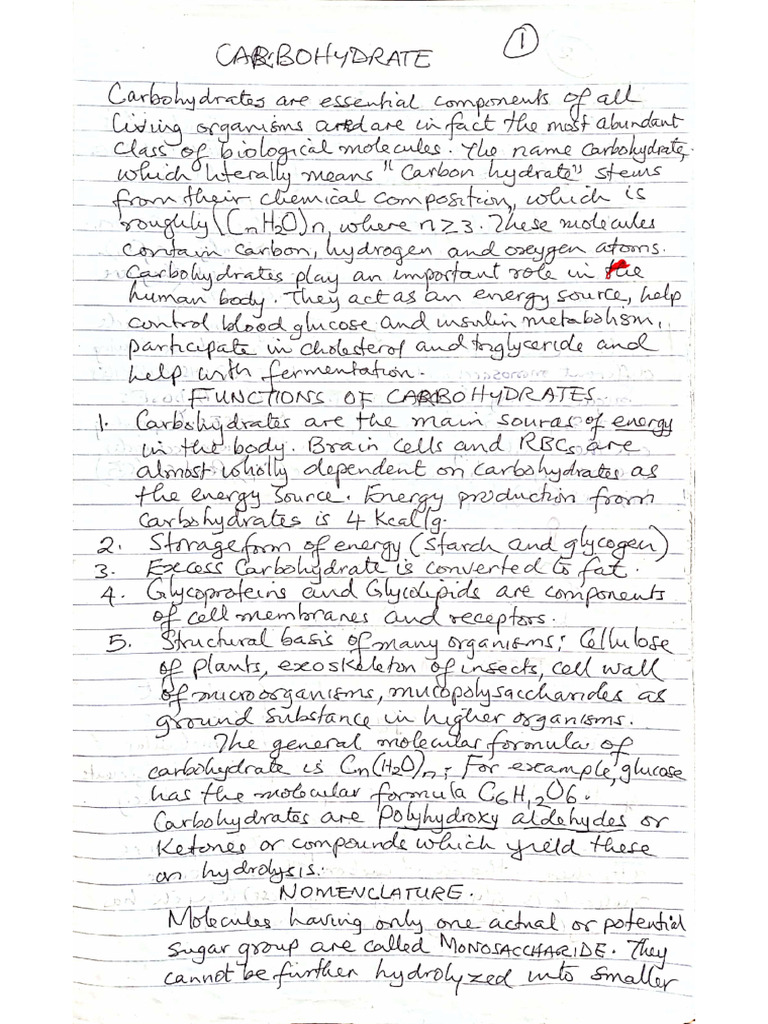 1
CARBOHYDRATE
Carbohydrates are essential components of all
living organisms and are in fact the most abundant
class of biological molecules. The name carbohydrate,
which literally means "Carbon hydrate" stems
from their chemical composition, which is
roughly (CnH2O)n, where n≥3. These molecules
contain carbon, hydrogen and oxygen atoms.
Carbohydrates play an important role in the
human body. They act as an energy source, help
control blood glucose and insulin metabolism,
participate in cholesterol and triglyceride and
help with fermentation.
FUNCTIONS OF CARBOHYDRATES
1. Carbohydrates are the main sources of energy
in the body. Brain cells and RBCs are
almost wholly dependent on carbohydrates as
the energy source. Energy production from
carbohydrates is 4 Kcal/g.
2. Storage form of energy (starch and glycogen)
3. Excess Carbohydrate is converted to fat.
4. Glycoproteins and Glycolipids are components
of cell membranes and receptors.
5. Structural basis of many organisms; Cellulose
of plants, exoskeleton of insects, cell wall
of microorganisms, mucopolysaccharides as
ground substance in higher organisms.
The general molecular formula of
carbohydrate is Cn(H2O)n; For example, glucose
has the molecular formula C6H12O6.
Carbohydrates are polyhydroxy aldehydes or
Ketones or compounds which yield these
on hydrolysis.
NOMENCLATURE.
Molecules having only one actual or potential
sugar group are called MONOSACCHARIDE. They
cannot be further hydrolyzed into smaller